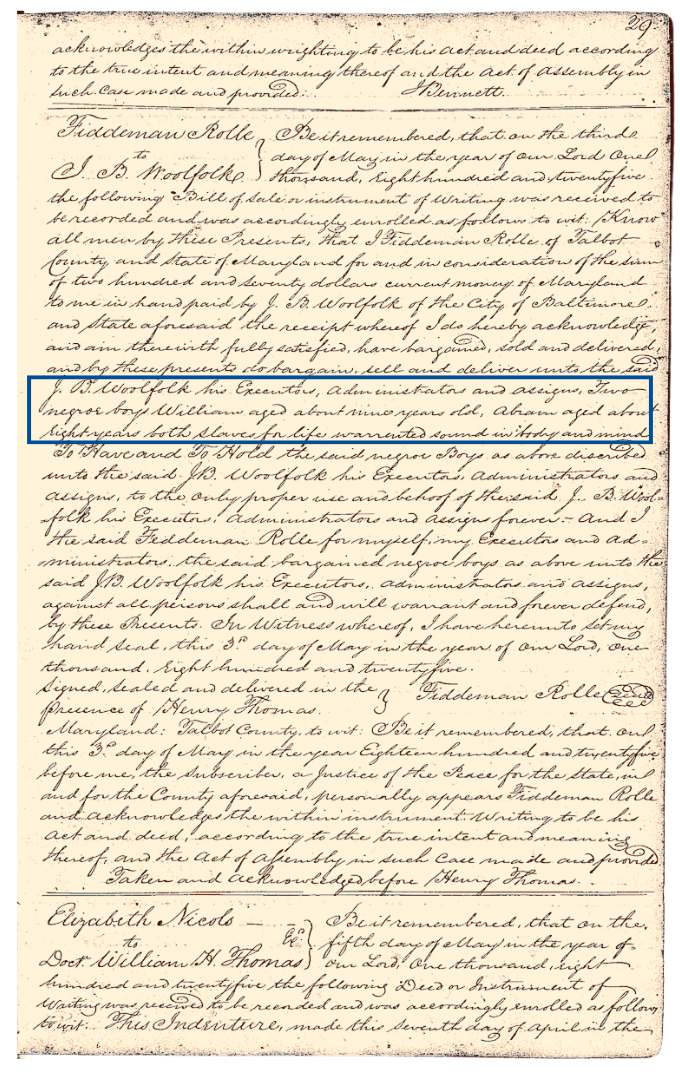 29.
acknowledges the within wrighting to be his Act and deed according
to the true intent and meaning thereof and the Act of Assembly in
such Case made and provided. J Bennett.
Fiddeman Rolle
to
J. B. Woolfolk
Be it remembered, that on the third
day of May in the year of our Lord One
thousand, eight hundred and twentyfive
the following Bill of Sale or instrument of Writing was received to
be recorded and was accordingly enrolled as follows to wit. Know
all men by these Presents, that I Fiddeman Rolle of Talbot
County and State of Maryland for and in consideration of the sum
of two hundred and seventy dollars current money of Maryland
to me in hand paid by J. B. Woolfolk of the City of Baltimore
and State aforesaid the receipt whereof I do hereby acknowledge,
and am therewith fully satisfied, have bargained, sold and delivered,
and by these presents do bargain, sell and deliver unto the said
J. B. Woolfolk his Executors, Administrators and assigns, Two
negroe boys William aged about nine years old, Abram aged about
eight years both slaves for life warrented sound in body and mind
To Have and To Hold the said negroe Boys as above discribed
unto the said J.B. Woolfolk his Executors, Administrators and
Assigns, to the only proper use and behoof of the said J. B. Wool-
folk his Executors, Administrators and Assigns forever - And I
the said Feddeman Rolle for myself, my Executors and Ad=
ministrators, the said bargained negroe boys as above unto the
said J.B. Woolfolk his Executors, Administrators and Assigns,
against all persons shall and will warrant and forever defend,
by these Presents. In Witness whereof, I have hereunto set my
hand seal, this 3d day of May in the year of our Lord, One
thousand, Eight hundred and twentyfive.
Signed, sealed and delivered in the
presence of Henry Thomas.
Fiddeman Rolle Seal
Maryland: Talbot County, to wit: Be it remembered, that on
this 3d day of May in the year Eighteen hundred and twentyfive
before me, the Subscriber, a Justice of the Peace for the State, in
and for the County aforesaid, personally appears Fiddeman Rolle
and acknowledges the within instrument Writing to be his
Act and deed, according to the true intent and meaning
thereof, and the Act of Assembly in such Case made and provided.
Taken and acknowledged before Henry Thomas.
Elizabeth Nicols
to
Doct. William H. Thomas
Be it remembered, that on the
fifth day of May in the year of
our Lord, One thousand, eight
hundred and twentyfive the following Deed or Instrument of
Writing was received to be recorded and was accordingly enrolled as follows
to wit. This Indenture, made this seventh day of April in the